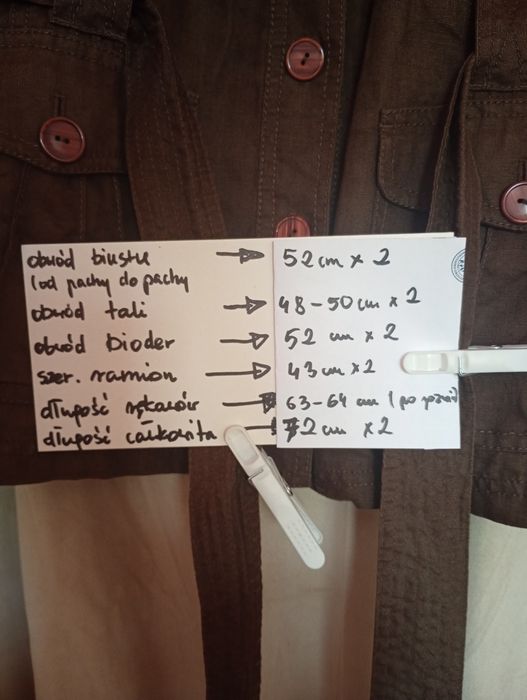 obwód biustu → 52 cm x 2
(od pachy do pachy
obwód tali → 48-50 cm x 2
obwód bioder → 52 cm x 2
szer. ramion → 43 cm x 2
długość rękawów → 63-64 cm (po
długość całkowita → 72 cm x 2